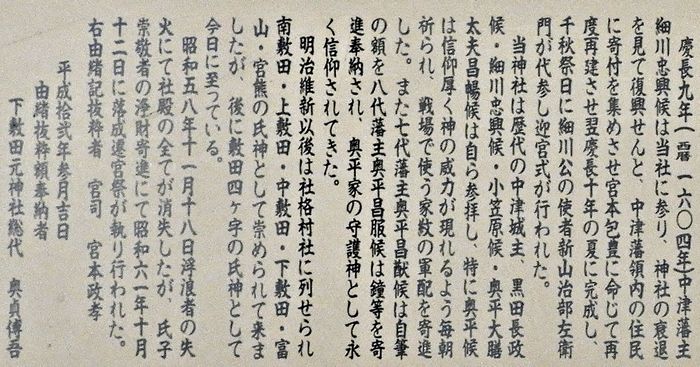 慶長九年(一暦一六〇四年)中津藩主
細川忠興候は当社に参り、神社の衰退
を見て復興せんと、中津藩領内の住民
に寄付を集めさせ宮本包豊に命じて再
度再建させ翌慶長十年の夏に完成し、
千秋祭日に細川公の使者新山治部左衛
門が代参し迎宮式が行われた。
当神社は歴代の中津城主、黒田長政
候・細川忠興候・小笠原候・奥平大膳
太夫昌暢候は自ら参拝し、特に奥平候
は信仰厚く神の威力が現れるよう毎朝
祈られ、戦場で使う家紋の軍配を寄進
した。また七代藩主奥平昌猷候は自筆
の額を八代藩主奥平昌服候は鐘等を寄
進奉納され、奥平家の守護神として永
く信仰されてきた。
明治維新以後は社格村社に列せられ
南敷田・上敷田・中敷田・下敷田・富
山・宮熊の氏神として崇められて来ま
したが、後に敷田四ヶ字の氏神として
今日に至っている。
昭和五八年十一月十八日浮浪者の失
火にて社殿の全てが消失したが、氏子
崇敬者の浄財寄進にて昭和六一年十月
十二日に落成遷宮祭が執り行われた。
右由緒記抜粋者 宮司 宮本政孝
平成拾弐年参月吉日
由緒抜粋額奉納者
下敷田元神社総代 奥貞傳吾